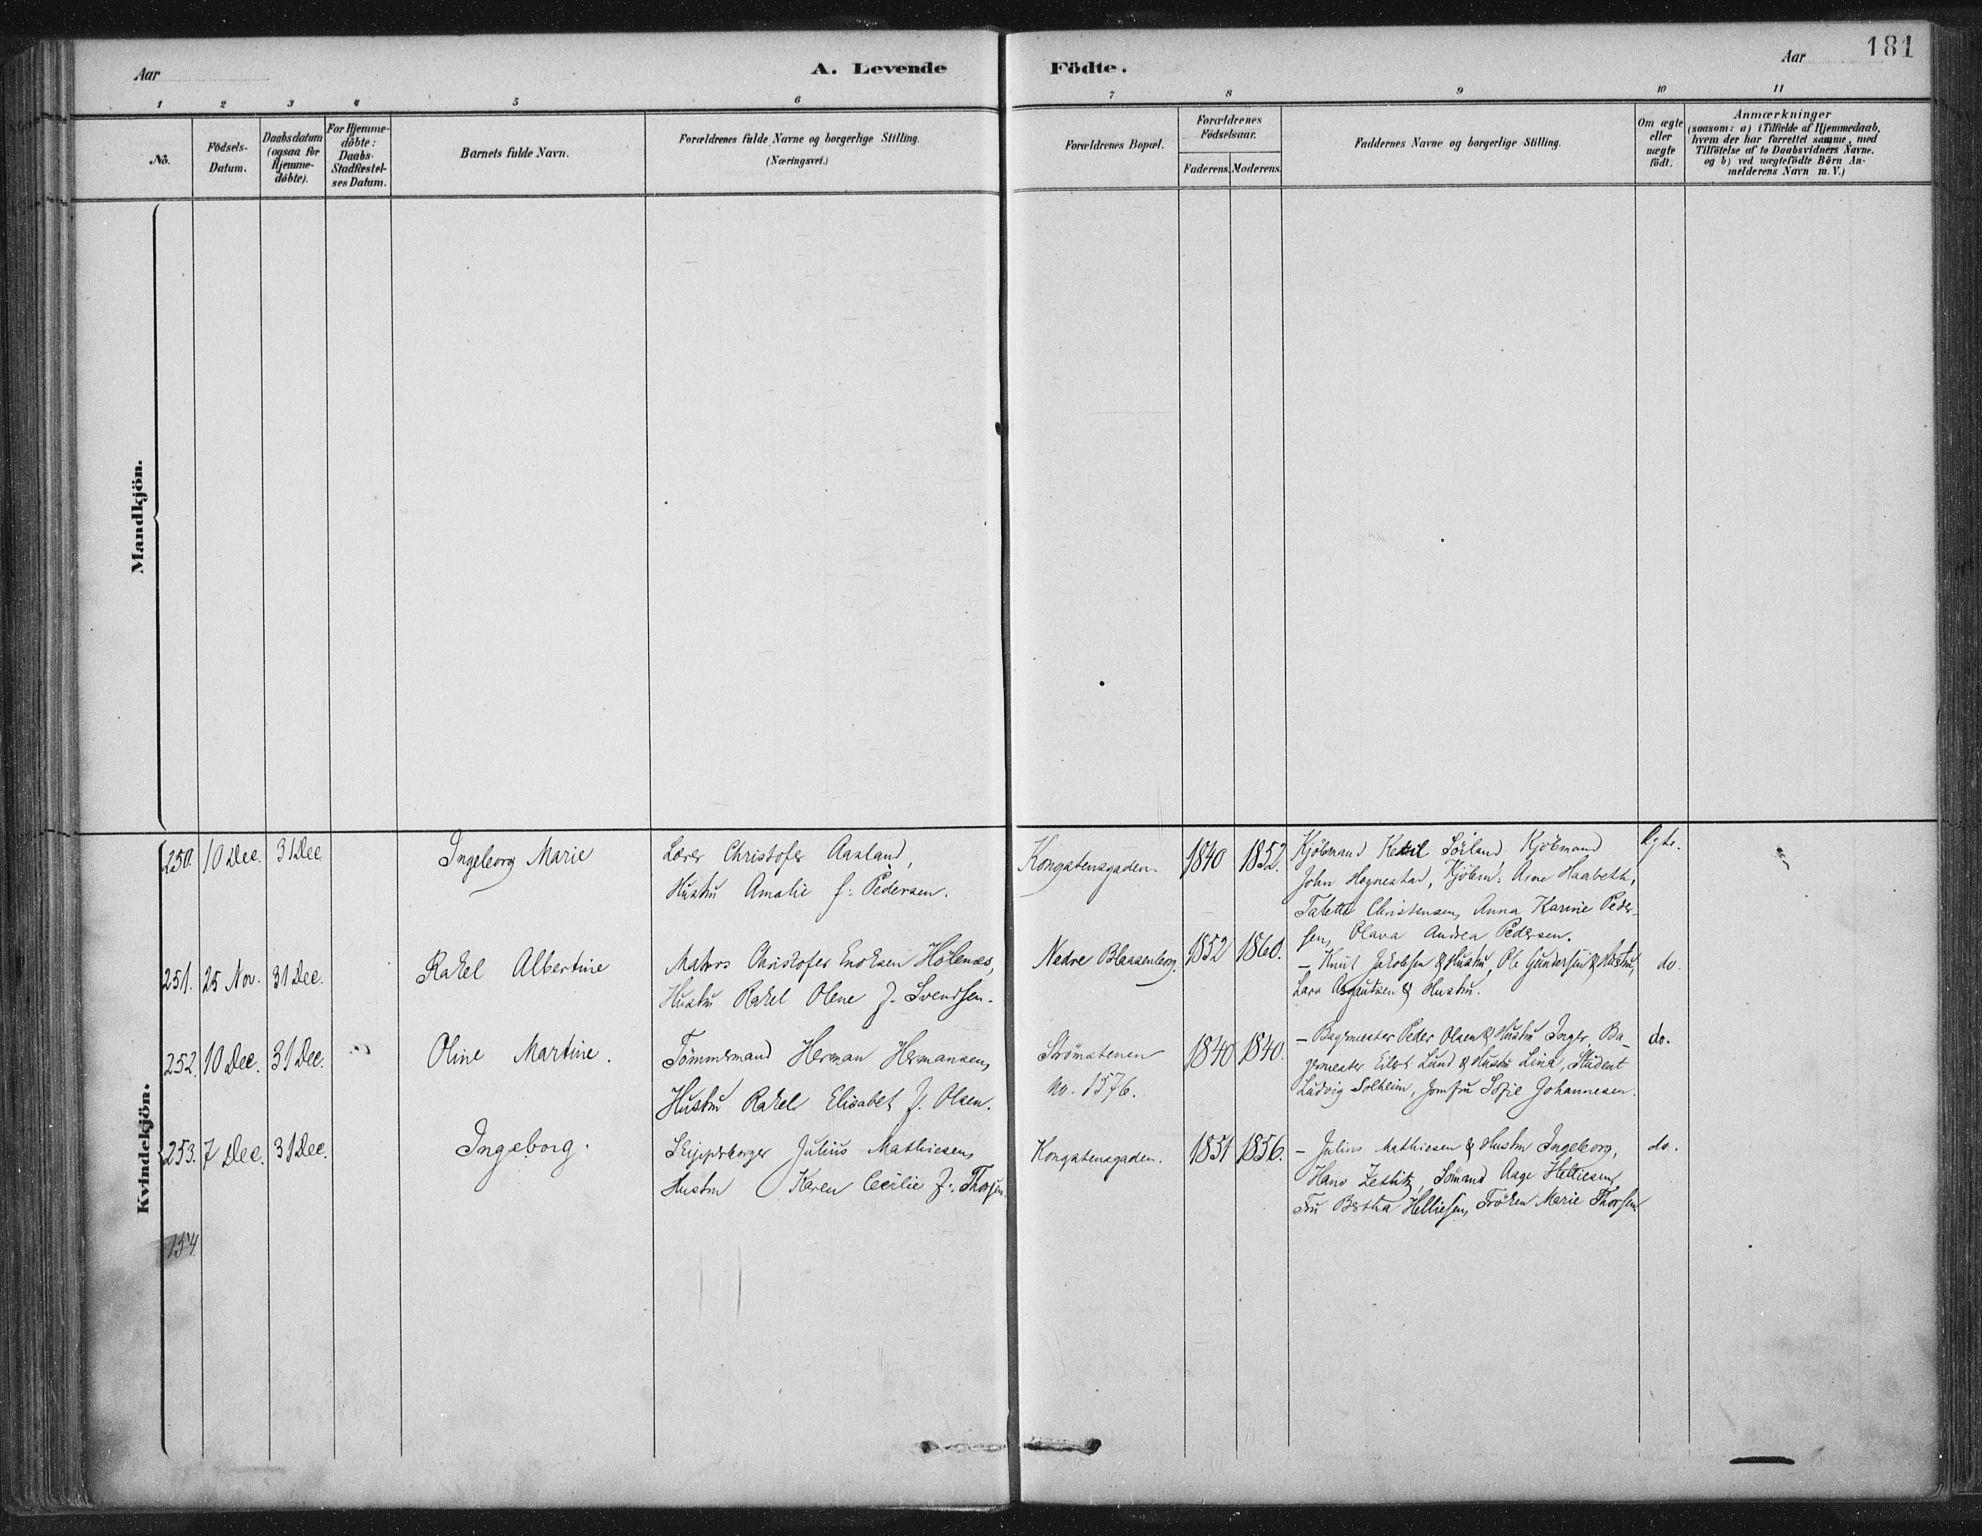 Aar
A. Levende
Födte.
Aar
181
1 2 3 4 5 6 7 8 9 10 11
No.
Födsels-
Datum.
Daabsdatum
(ogsaa for
Hjemme-
døbte).
For Hjemme-
døbte:
Daabs-
Stadfestel-
ses Datum.
Barnets fulde Navn.
Forældrenes fulde Navne og borgerlige Stilling.
(Næringsvei.)
Forældrenes Bopæl.
Forældrenes
Födselsaar.
Faderens. Moderens.
Faddernes Navne og borgerlige Stilling.
Om ægte
eller
uægte
födt.
Anmærkninger
(saasom: a) i Tilfælde af Hjemmedaab,
hvem der har forrettet samme, med
Tilföielse af to Daabsvidners Navne.
og b) ved uægtefödte Börn An-
melderens Navn m. V.)
Mandkjön.
Kvindekjön.
250. 10 Dec. 31 Dec.
Ingeborg Marie
Lærer Christofer Aasland,
Hustru Amalie f. Pedersen.
Kongstensgaden.
1840 1852.
Kjöbmand Ketil Söiland, Kjöbmand
John Hognestad, Kjöbm: Arne Haabeth,
Talette Christensen, Anna Karine Peder-
sen, Olava Andrea Pedersen.
Ægte.
251. 25 Nov. 31 Dec.
Rakel Albertine
Matros Christofer Enoksen Holenæs,
Hustru Rakel Olene f. Svendsen.
Nedre Blaasenborg.
1852 1860.
– Knut Jakobsen & Hustru, Ole Gundersen & Hustru,
Lars Asgautsen & Hustru.
do.
252. 10 Dec. 31 Dec.
Oline Martine.
Tömmermand Herman Hermansen,
Hustru Rakel Elisabet f. Olsen.
Strömstenen
No. 1576.
1840 1840.
– Bagermester Peder Olsen & Hustru Inger, Ba-
germester Eilert Lund & Hustru Lina, Student
Ludvig Solheim, Jomfru Sofie Johannesen.
do.
253. 7 Dec. 31 Dec.
Ingeborg.
Skipperborger Julius Mathiesen,
Hustru Karen Cecilie f. Thorsen.
Kongstensgaden.
1851 1856.
– Julius Mathiesen & Hustru Ingeborg,
Hans Zetlitz, Sömand Aage Helliesen,
Fru Bertha Helliesen, Fröken Marie Thorsen
do.
154.